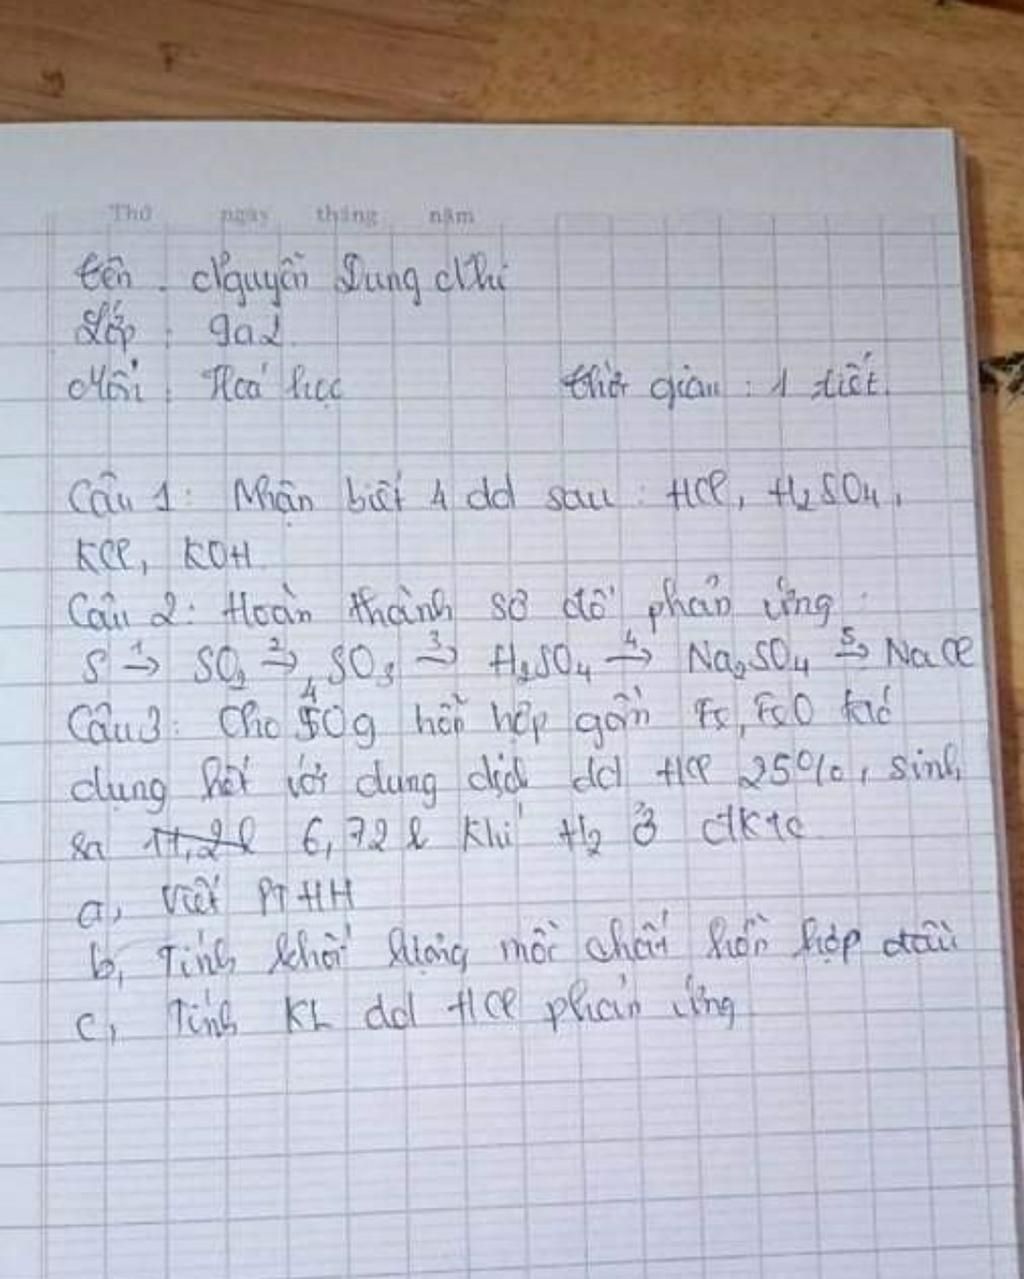 Thứ ngày tháng năm
tên : Nguyễn Dung Nhi
Lớp : 9a2
Môn : Hoá học thời gian : 1 tiết.
Câu 1: Nhận biết 4 dd sau : HCl, H₂SO₄,
KCl, KOH
Câu 2: Hoàn thành sơ đồ phản ứng :
S →¹ SO₂ →² SO₃ →³ H₂SO₄ →⁴ Na₂SO₄ →⁵ NaCl
Câu 3: Cho 40g hỗn hợp gồm Fe, FeO tác
dụng hết với dung dịch dd HCl 25%, sinh
ra 11,2l 6,72 l khí H₂ ở đktc
a, Viết PTHH
b, Tính khối lượng mỗi chất hỗn hợp đầu
c, Tính KL dd HCl phản ứng